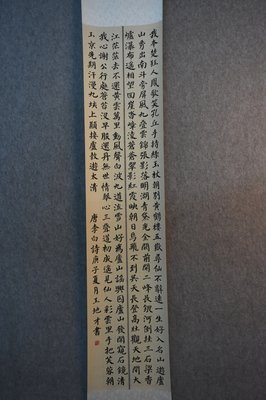 我本楚狂人鳳歌笑孔丘手持綠玉杖朝別黃鶴樓五嶽尋仙不辭遠一生好入名山遊廬
山秀出南斗旁屏風九疊雲錦張影落明湖青黛光金闕前開二峰長銀河倒挂三石梁香
爐瀑布遙相望回崖沓嶂凌蒼蒼翠影紅霞映朝日鳥飛不到吳天長登高壯觀天地間大
江茫茫去不還黃雲萬里動風色白波九道流雪山好為廬山謠興因廬山發閒窺石鏡清
我心謝公行處蒼苔沒早服還丹無世情琴心三疊道初成遙見仙人彩雲裏手把芙蓉朝
玉京先期汗漫九垓上願接盧敖遊太清
唐李白詩庚子夏月王地才書